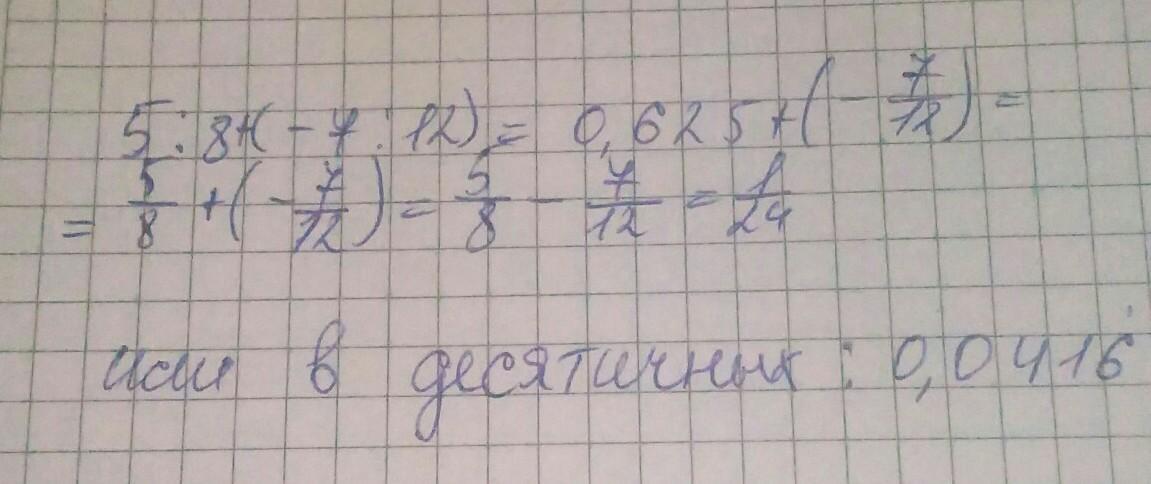 5 : 8 + (- 7 : 12) = 0,625 + (- 7/12) =
= 5/8 + (- 7/12) = 5/8 - 7/12 = 1/24
или в десятичных : 0,0416̇